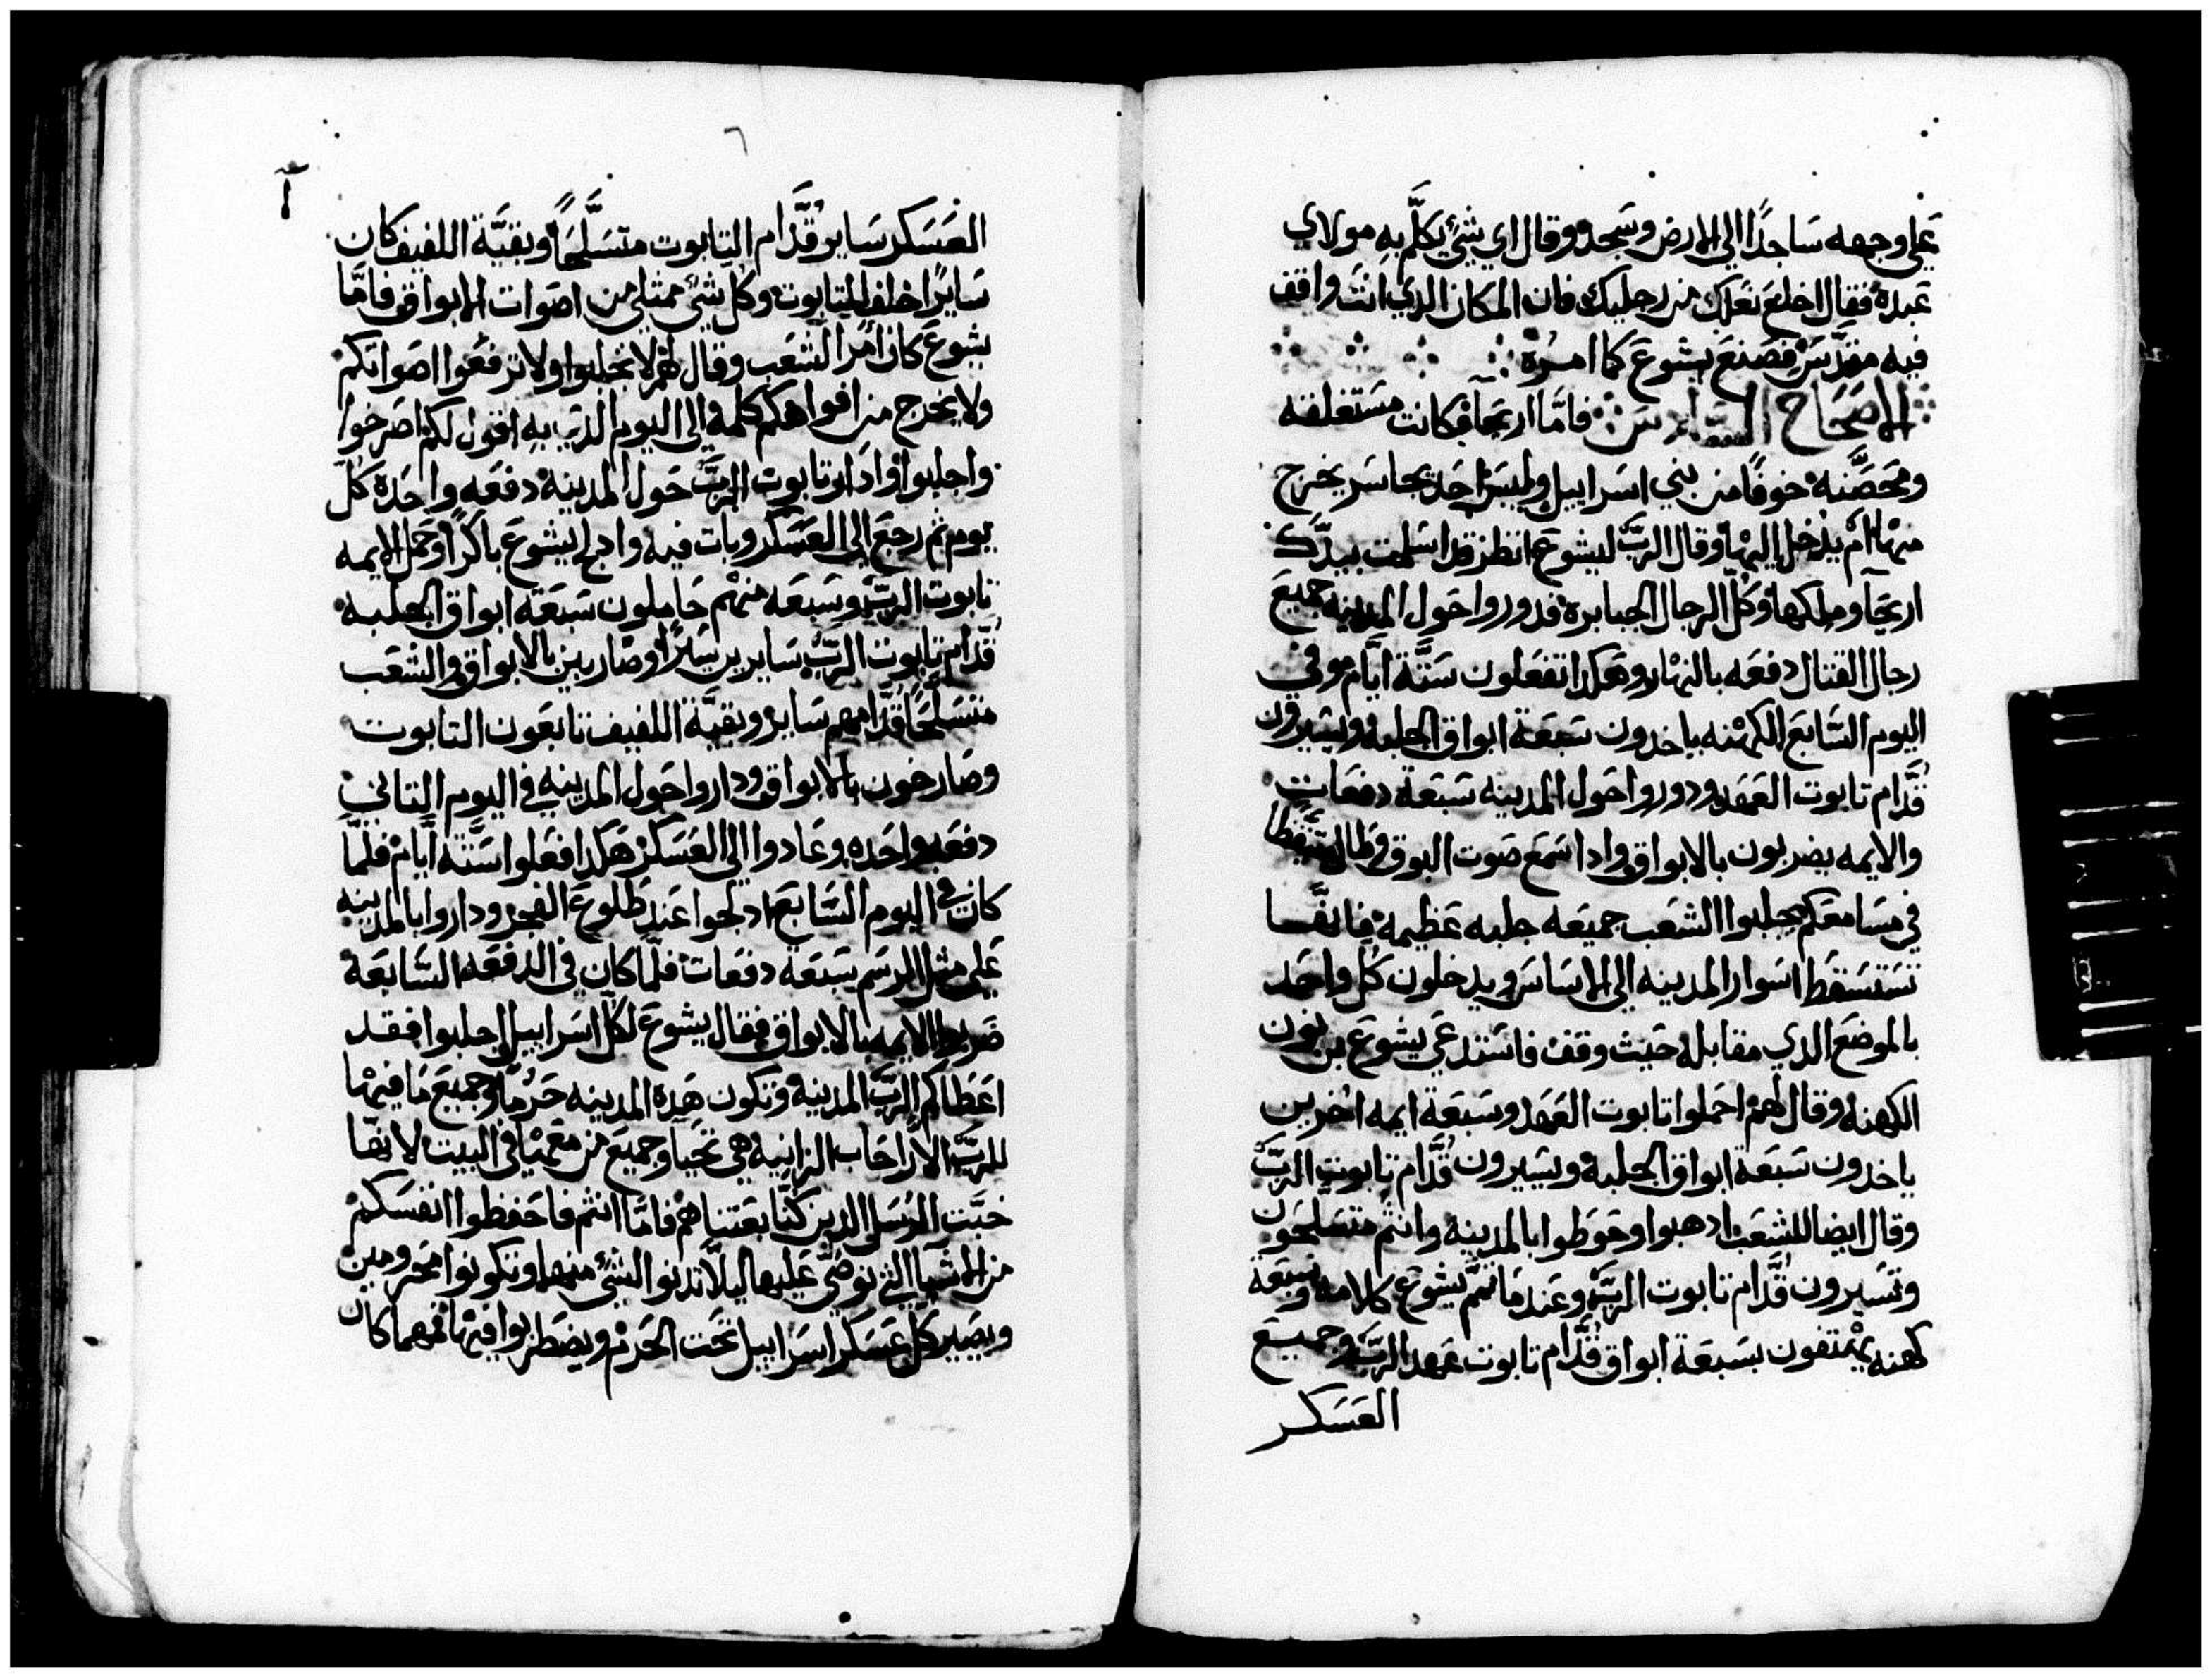 علي وجهه ساجدًا الي الارض وسجد وقال اي شيْ يكلّم به مولاي
عبده فقال اخلع نعلك من رجليك فان المكان الدي انت واقف
فيه مقدّس فصنع يشوع كما امره
الاصحاح السادس فامّا اريحا فكانت مستغلقه
ومحصّنه خوفًا من بني اسراييل وليس احد يجاسر يخرج
منها ام يدخل اليها وقال الربّ ليشوع انظر قد اسلمت بيدك
اريحا وملكها وكلّ الرجال الجبابره فدوروا حول المدينه جميع
رجال القتال دفعه بالنهار وهكدا تفعلون ستّة ايّام وفي
اليوم السّابع الكهنه ياخدون سبعة ابواق الجلبه ويسيرون
قدّام تابوت العهد ودوروا حول المدينه سبعة دفعات
والايمه يضربون بالابواق وادا سمع صوت البوق وطال
في مسامعكم يجلبوا الشعب جميعه جلبه عظيمه فانفسا
تستسقط اسوار المدينه الي الاساس ويدخلون كل واحد
بالموضع الدي مقابله حيث وقف فاستدعي يشوع بن نون
الكهنه وقال لهم احملوا تابوت العهد وسبعة ايمه اخرين
ياخدون سبعة ابواق الجلبه ويسيرون قدّام تابوت الربّ
وقال ايضا للشعب ادهبوا وحوطوا بالمدينه وانتم متسلحون
وتسيرون قدّام تابوت الربّ وعند ما تمّ يشوع كلامه وسبعة
كهنه يهتفون بسبعة ابواق قدّام تابوت عهد الربّ وجميع
العسكر
٦
العسكر ساير قدّام التابوت متسلّحًا وبقيّة اللفيف كان
سايرًا خلف التابوت وكل شيْ ممتلي من اصوات الابواق فامّا
يشوع كان امر الشعب وقال لهم لا تجلبوا ولا ترفعوا اصواتكم
ولا يخرج من افواهكم كلمه الي اليوم الدي به اقول لكم اصرخوا
واجلبوا وادار تابوت الربّ حول المدينه دفعه واحده كل
يوم ثم رجع الي العسكر وبات فيه وادلج يشوع باكرًا وحمل الايمه
تابوت الربّ وسبعه منهم حاملون سبعة ابواق الجلبه
قدّام تابوت الربّ سايرين سيرًا وضاربين بالابواق والشعب
متسلّحًا قدّامهم ساير وبقيّة اللفيف تابعون التابوت
وصارخون بالابواق وداروا حول المدينه في اليوم التاني
دفعه واحده وعادوا الي العسكر هكدا فعلوا ستّة ايّام فلمّا
كان في اليوم السّابع ادلجوا عند طلوع الفجر وداروا بالمدينه
علي مثل الرسم سبعة دفعات فلمّا كان في الدفعه السّابعة
ضربوا الايمه بالابواق فقال يشوع لكل اسراييل اجلبوا فقد
اعطاكم الربّ المدينه وتكون هده المدينه حرمًا وجميع ما فيها
للربّ الا راحاب الزانيه هي تحيا وجميع من معها في البيت لانها
خبّت الرسل الدين كنّا بعتناهم فامّا انتم فاحفظوا انفسكم
من الاشيا التي نوصّي عليها ليلّا تدنوا الشيْ منها وتكونوا مجرومين
ويصير كل عسكر اسراييل تحت الحرم ويضطربوا فيها فمهما كان